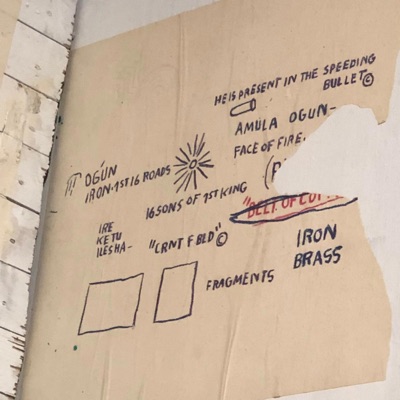 HE IS PRESENT IN THE SPEEDING
BULLET©
AMULA OGUN-
FACE OF FIRE.
OGÚN
IRON.1ST 16 ROADS
16 SONS OF 1ST KING
IRE
KETU
ILESHA-
"CRNT F BLD"©
"BELT OF
IRON
BRASS
FRAGMENTS